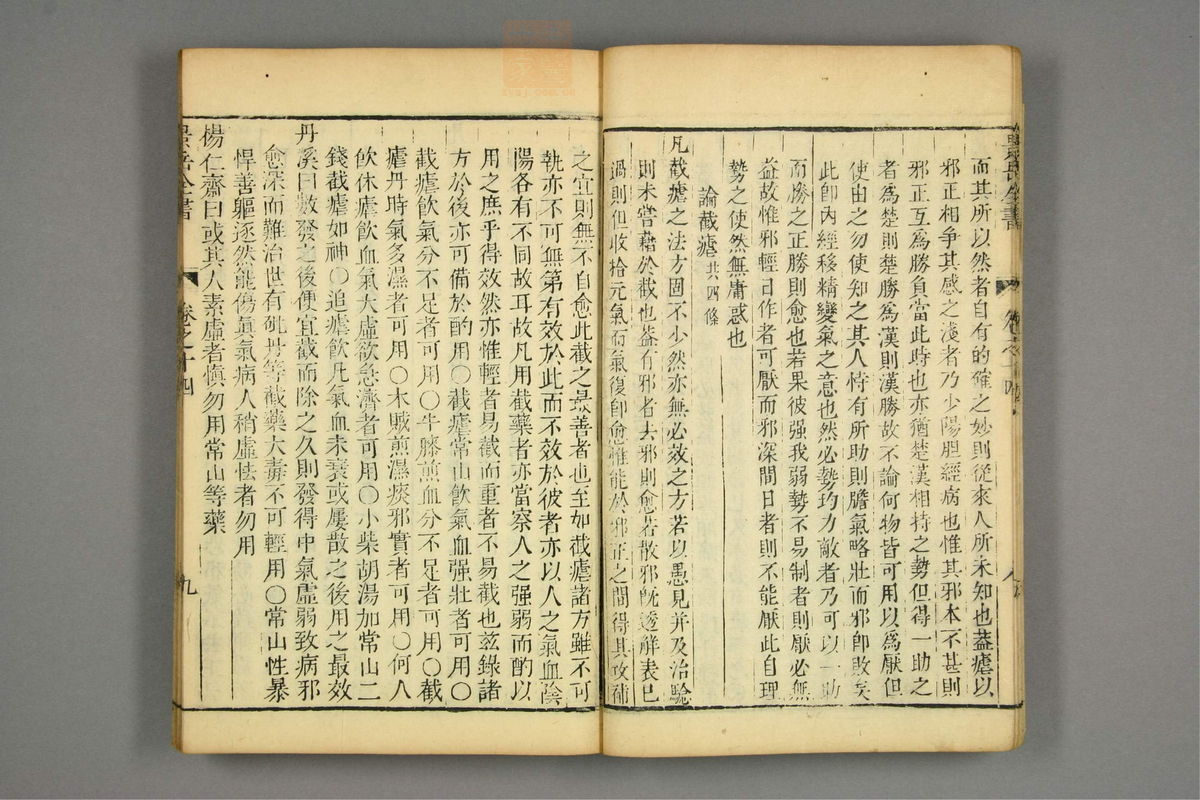 而其所以然者自有的確之妙則從來人所未知也蓋瘧以
邪正相爭其感之淺者乃少陽膽經病也惟其邪本不甚則
邪正互爲勝負當此時也亦猶楚漢相持之勢但得一助之
者爲楚則楚勝爲漢則漢勝故不論何物皆可用以爲厭但
使由之勿使知之其人恃有所助則膽氣略壯而邪卽敗矣
此卽內經移精變氣之意也然必勢均力敵者乃可以一助
而勝之正勝則愈也若果彼强我弱勢不易制者則厭必無
益故惟邪輕日作者可厭而邪深間日者則不能厭此自理
勢之使然無庸惑也
論截瘧共四條
凡截瘧之法方固不少然亦無必效之方若以愚見并及治驗
則未嘗藉於截也蓋有邪者去邪則愈若散邪旣透解表已
過則但收拾元氣而氣復卽愈惟能於邪正之間得其攻補
之宜則無不自愈此截之最善者也至如截瘧諸方雖不可
執亦不可無第有效於此而不效於彼者亦以人之氣血陰
陽各有不同故耳故凡用截藥者亦當察人之强弱而酌以
用之庶乎得效然亦惟輕者易截而重者不易截也兹錄諸
方於後亦可備於酌用○截瘧常山飲氣血强壯者可用○
截瘧飲氣分不足者可用○牛膝煎血分不足者可用○截
瘧丹時氣多濕者可用○木賊煎濕痰邪實者可用○何人
飲休瘧飲血氣大虛欲急濟者可用○小柴胡湯加常山二
錢截瘧如神○追瘧飲凡氣血未衰或屢散之後用之最效
丹溪曰數發之後便宜截而除之久則發得中氣虛弱致病邪
愈深而難治世有砒丹等截藥大毒不可輕用○常山性暴
悍善驅逐然能傷眞氣病人稍虛怯者勿用
楊仁齋曰或其人素虛者愼勿用常山等藥
景岳全書
卷之十四
九